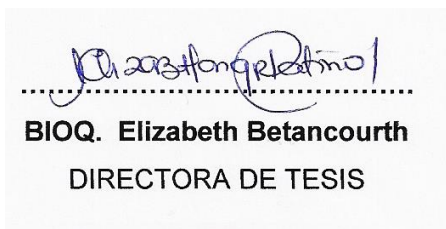 BIOQ. Elizabeth Betancourth
DIRECTORA DE TESIS